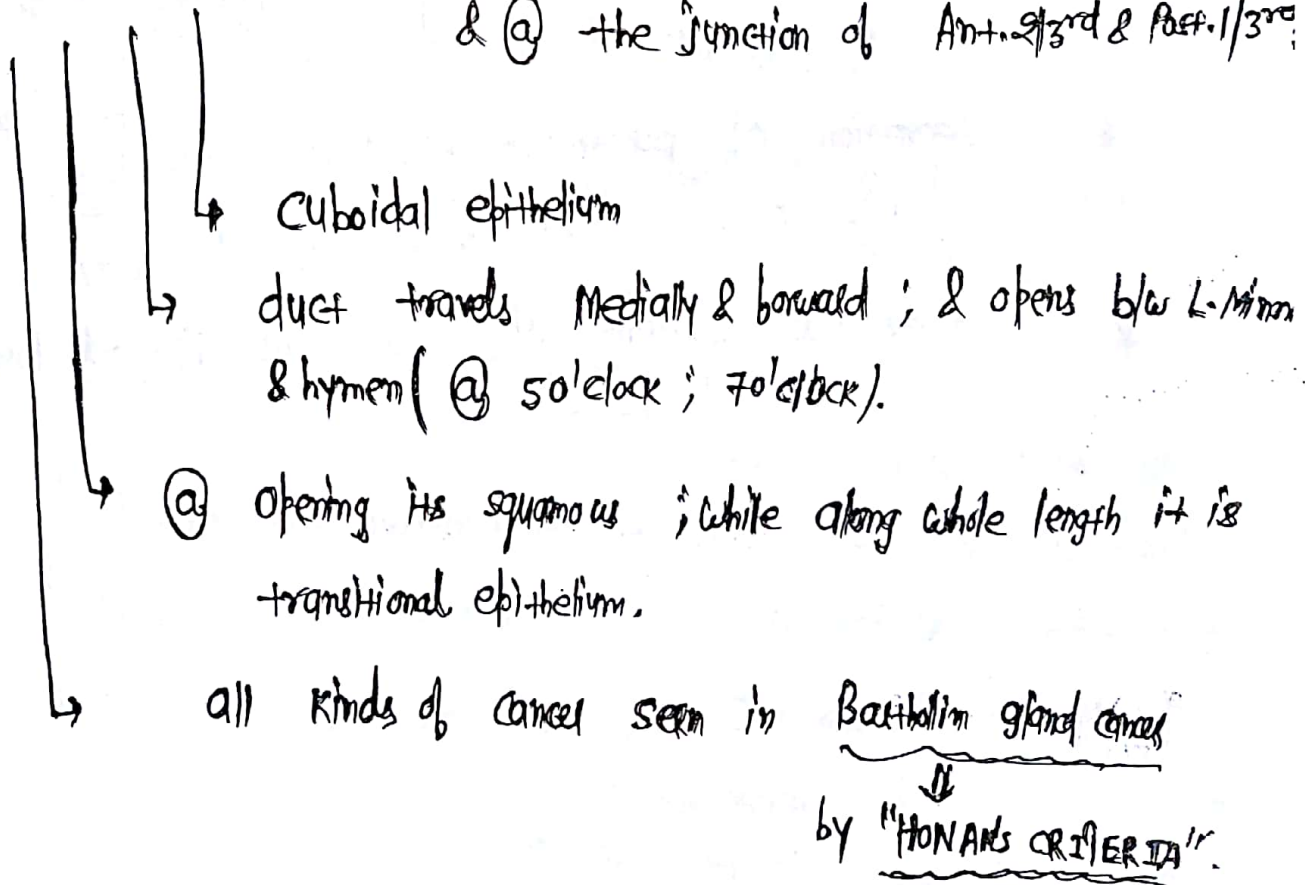 & @ the junction of Ant. 2/3rd & Post. 1/3rd
Cuboidal epithelium
duct travels Medially & forward ; & opens b/w L. Minora
& hymen ( @ 5 o'clock ; 7 o'clock ).
@ opening its squamous ; while along whole length it is
transitional epithelium.
all kinds of cancer seen in Bartholin gland cancer
by "HONAN'S CRITERIA".